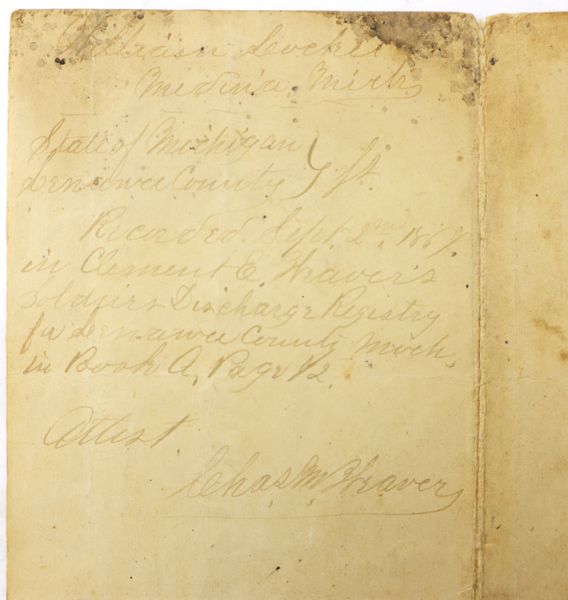 William Locke
Medina Mich,
State of Michigan }
Lenawee County } ss.
Recorded Sept. 2nd 1867.
in Clement E. Weaver's
Soldiers Discharge Registry
for Lenawee County Mich,
in Book A, Page 12.
Attest
Chas M Weaver